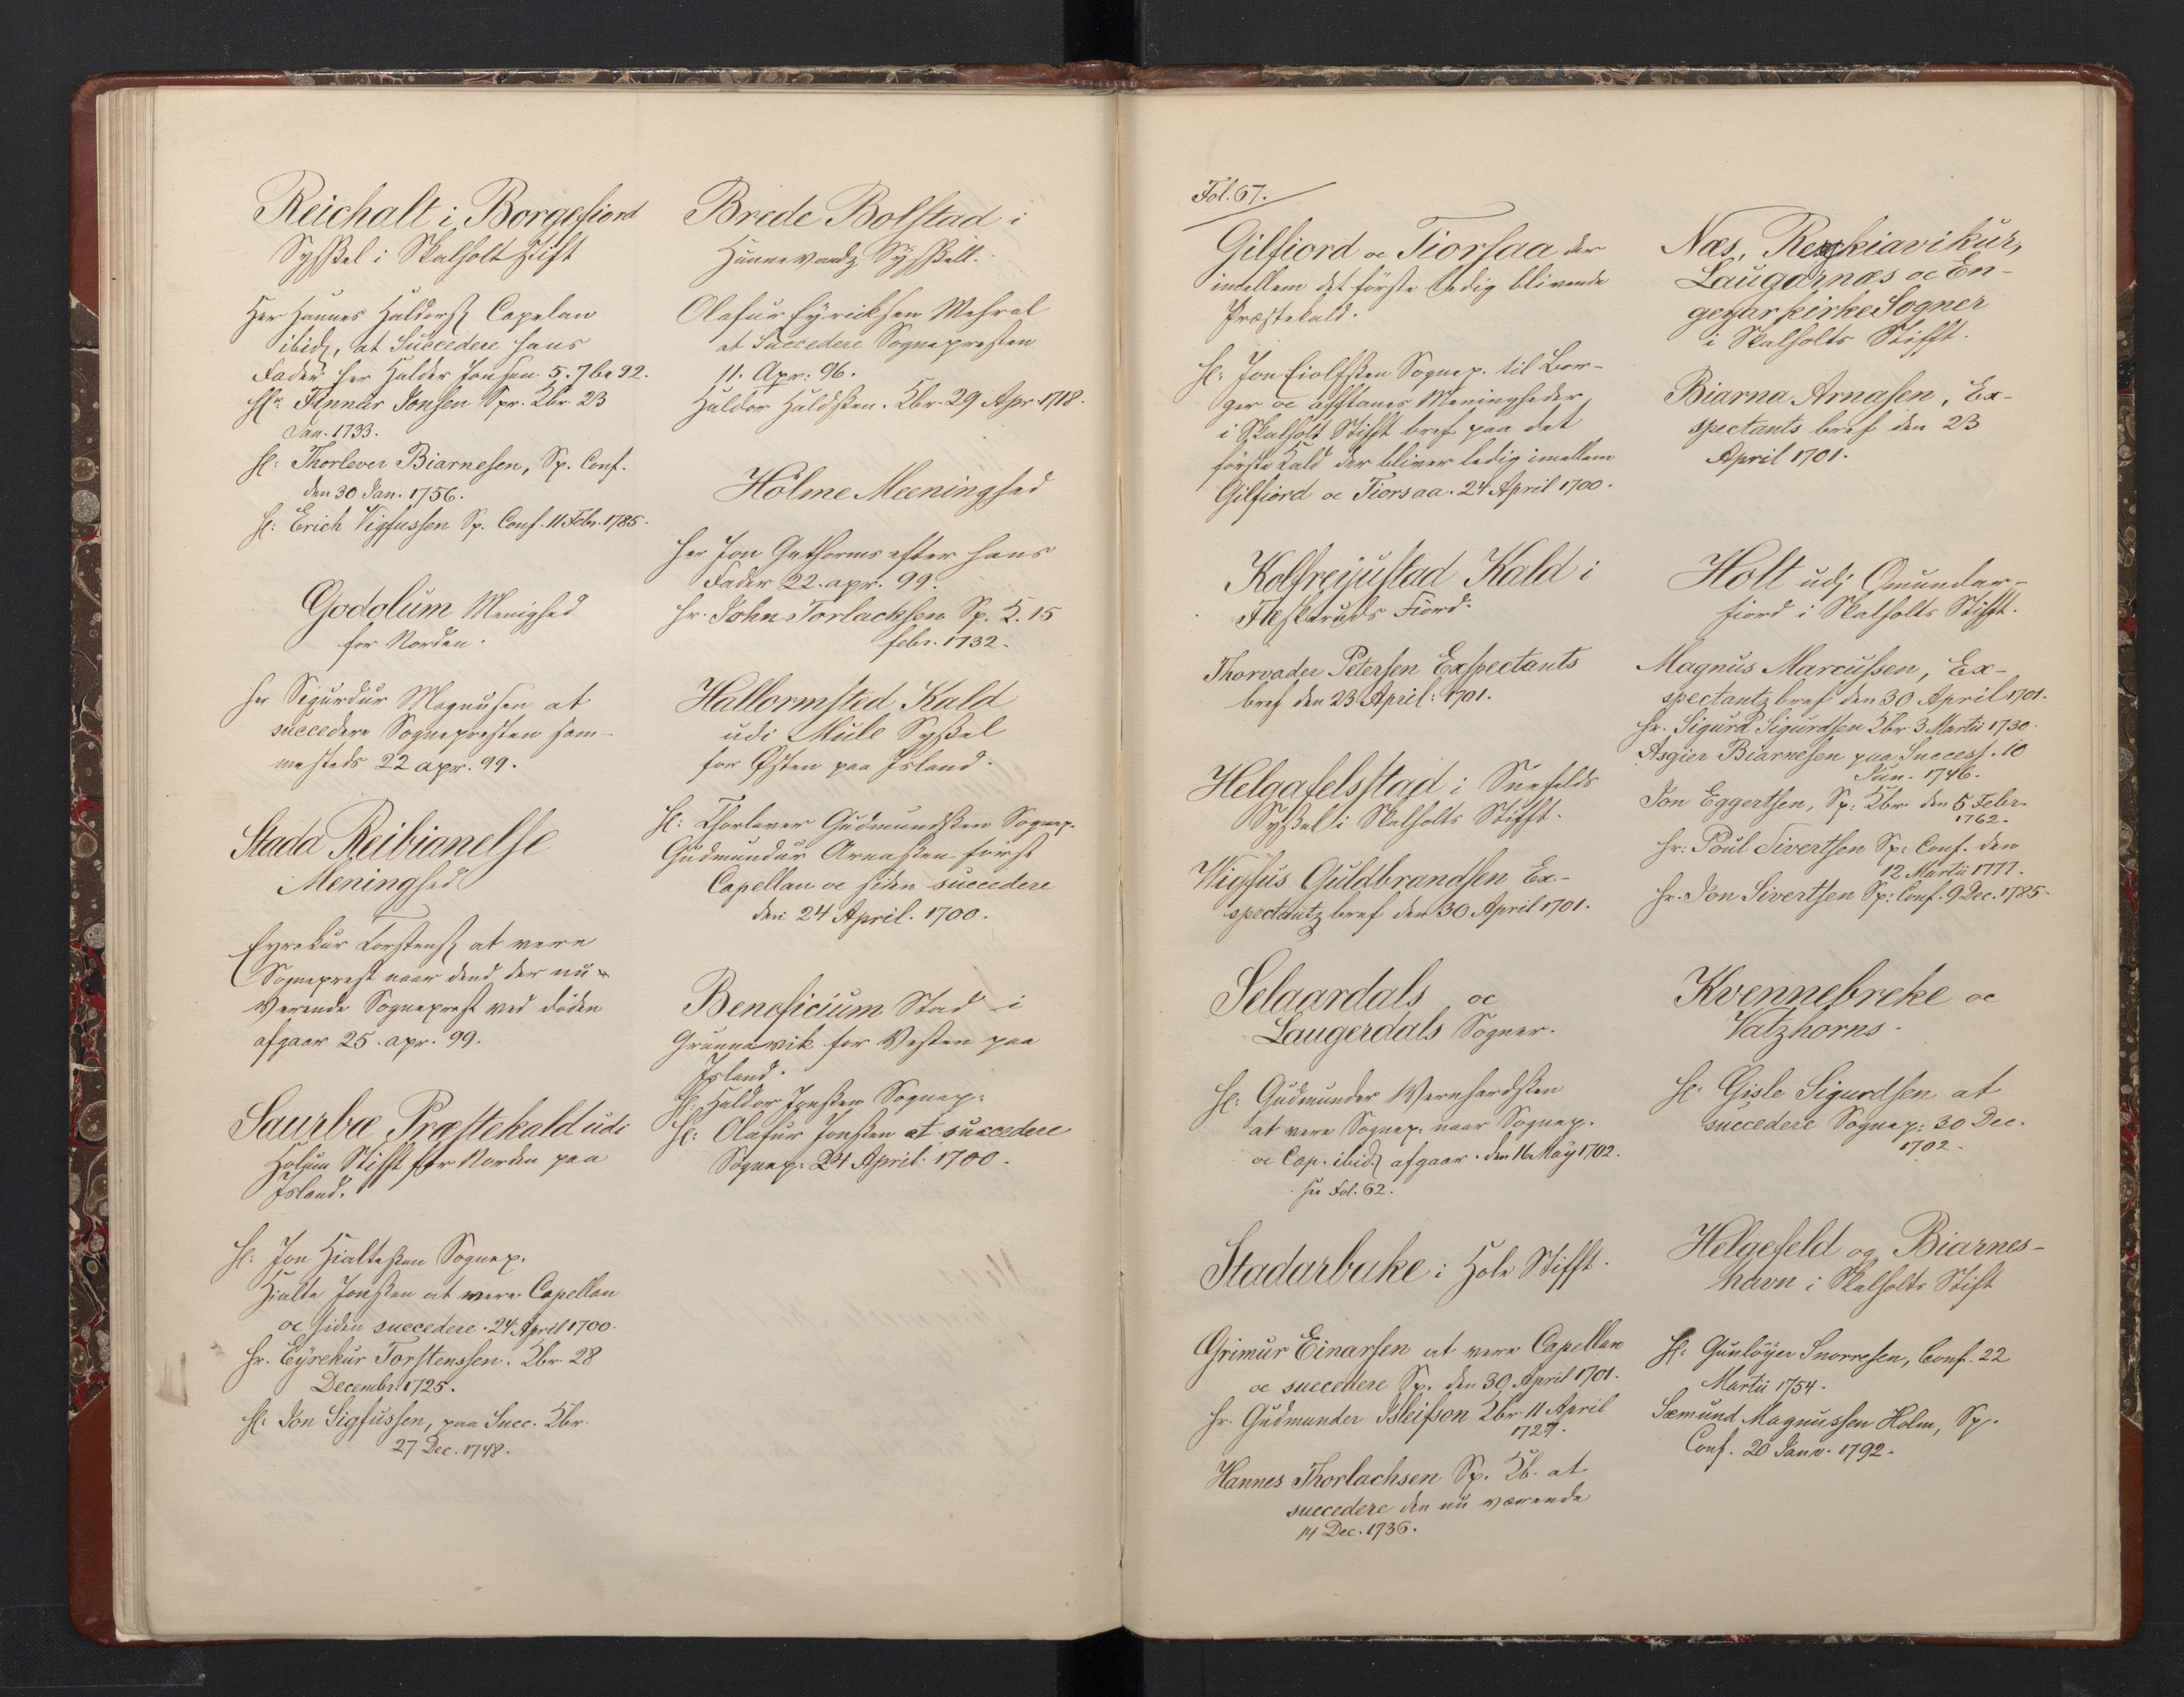 Reichalt i Borgefiord
Sysſel i Skalholt Stift
Her Hannes Haldorſ Capelan
ibid, at Succedere hans
Fader her Haldor Jonsen 5. 7br 92.
Hr Finnur Jonsen Spr. Kbr 23
Jan. 1733.
H: Thorlever Biarnesen, Sp. Conf.
den 30 Jan. 1756.
H: Erich Vigfussen Sp. Conf. 11 Febr. 1785.
Godolum Menighed
for Norden.
her Sigurdur Magnusen at
succedere Sognepresten sam-
mesteds 22 apr. 99.
Stada Reibianelse
Meninghed
Eyrekur Torstensſ at være
Sogneprest naar dend der nu
værende Sogneprest ved døden
afgaar 25. apr. 99.
Saurbæ Præstekald udi
Holum Stifft for Norden paa
Island.
H: Jon Hialtesen Sognep.
Hialte Jonsen at være Capellan
oc siden succedere. 24 April 1700.
Hr. Eyrekur Torstenssen. Kbr 28
Decembr. 1725.
H: Jon Sigfussen, paa Succ. Kbr.
27 Dec. 1748.
Brede Bolstad i
Hunnevandz Sysſell.
Olafur Eyricksen
at Succedere Sognepresten
11. Apr: 96.
Haldor Haldsen. Kbr. 29 Apr. 1718.
Holme Meeninghed
her Jon Guthorms efter hans
Fader 22. apr. 99.
Hr. John Torlacksen Sp. K. 15
febr. 1732.
Hallormsted Kald
udi Mule Sysſel
for Østen paa Island.
H: Thorlever Gudmundsen Sognep.
Gudmundur Arnesen først
Capellan oc siden succedere
den 24 April. 1700.
Beneficium Stad i
Grunnawik for Vesten paa
Island.
H: Haldor Jonsen Sognep:
H: Olafur Jonsen at succedere
Sognep. 24 April. 1700.
Fol. 67.
Gilfiord oc Tiorsaa der
imellem det første ledig blivende
Præstekald.
H: Jon Eiolfsen Sognep. til Bor-
ger oc Meningheder
i Skalholt Stifft bref paa det
første Kald der bliver ledig imellem
Gilfiord oc Tiorsaa. 24 April 1700.
Kolfreyustad Kald i
Fiord.
Thorvader Petersen Exspectants
bref den 23 April: 1701.
Helgafelsstad i Snefelds
Sysſel i Skalholts Stifft.
Wigfus Guldbrandsen Ex-
spectantz bref den 30 April 1701.
Selaardals oc
Laugerdals Sogner.
H: Gudmunder Vernhardsen
at være Sognep. naar Sognep.
oc Cap. ibid afgaar. den 16 May 1702.
see Fol. 62.
Stadarbake i Hole Stifft.
Grimur Einarsen at være Capellan
oc succedere Sp. den 30 April 1701.
Hr. Gudmunder Isleifson Kbr 11 April
1727.
Hannes Thorlachsen Sp. Kb. at
succedere den nu værende
14 Dec. 1736.
Næs, Reykiavikur,
Laugarnæs oc En-
geyar kirke Sogner
i Skalholts Stifft.
Biarna Arnasen, Ex-
spectants bref den 23
April 1701.
Holt udj Onunder-
fiord i Skalholts Stifft.
Magnus Marcussen, Ex-
spectantz bref den 30 April 1701.
Hr. Sigurd Sigurdsen Kbr 3 Martii 1730.
Asgier Biarnesen paa Success. 10
Jun. 1746.
Jon Eggertsen, Sp: Kbr. den 5 Febr.
1762.
Hr: Poul Sivertsen Sp: Conf. den
12 Martii 1777.
Hr. Jon Sivertsen Sp: Conf. 9 Dec. 1785.
Kvennebreke oc
Vatzhorns.
H: Gisle Sigurdsen at
succedere Sognep: 30 Dec.
1702.
Helgefeld og Biarnes-
havn i Skalholts Stift
H: Gunløyer Snorresen, Conf. 22
Martii 1754.
Sæmund Magnussen Holm, Sp.
Conf. 20 Janv. 1792.